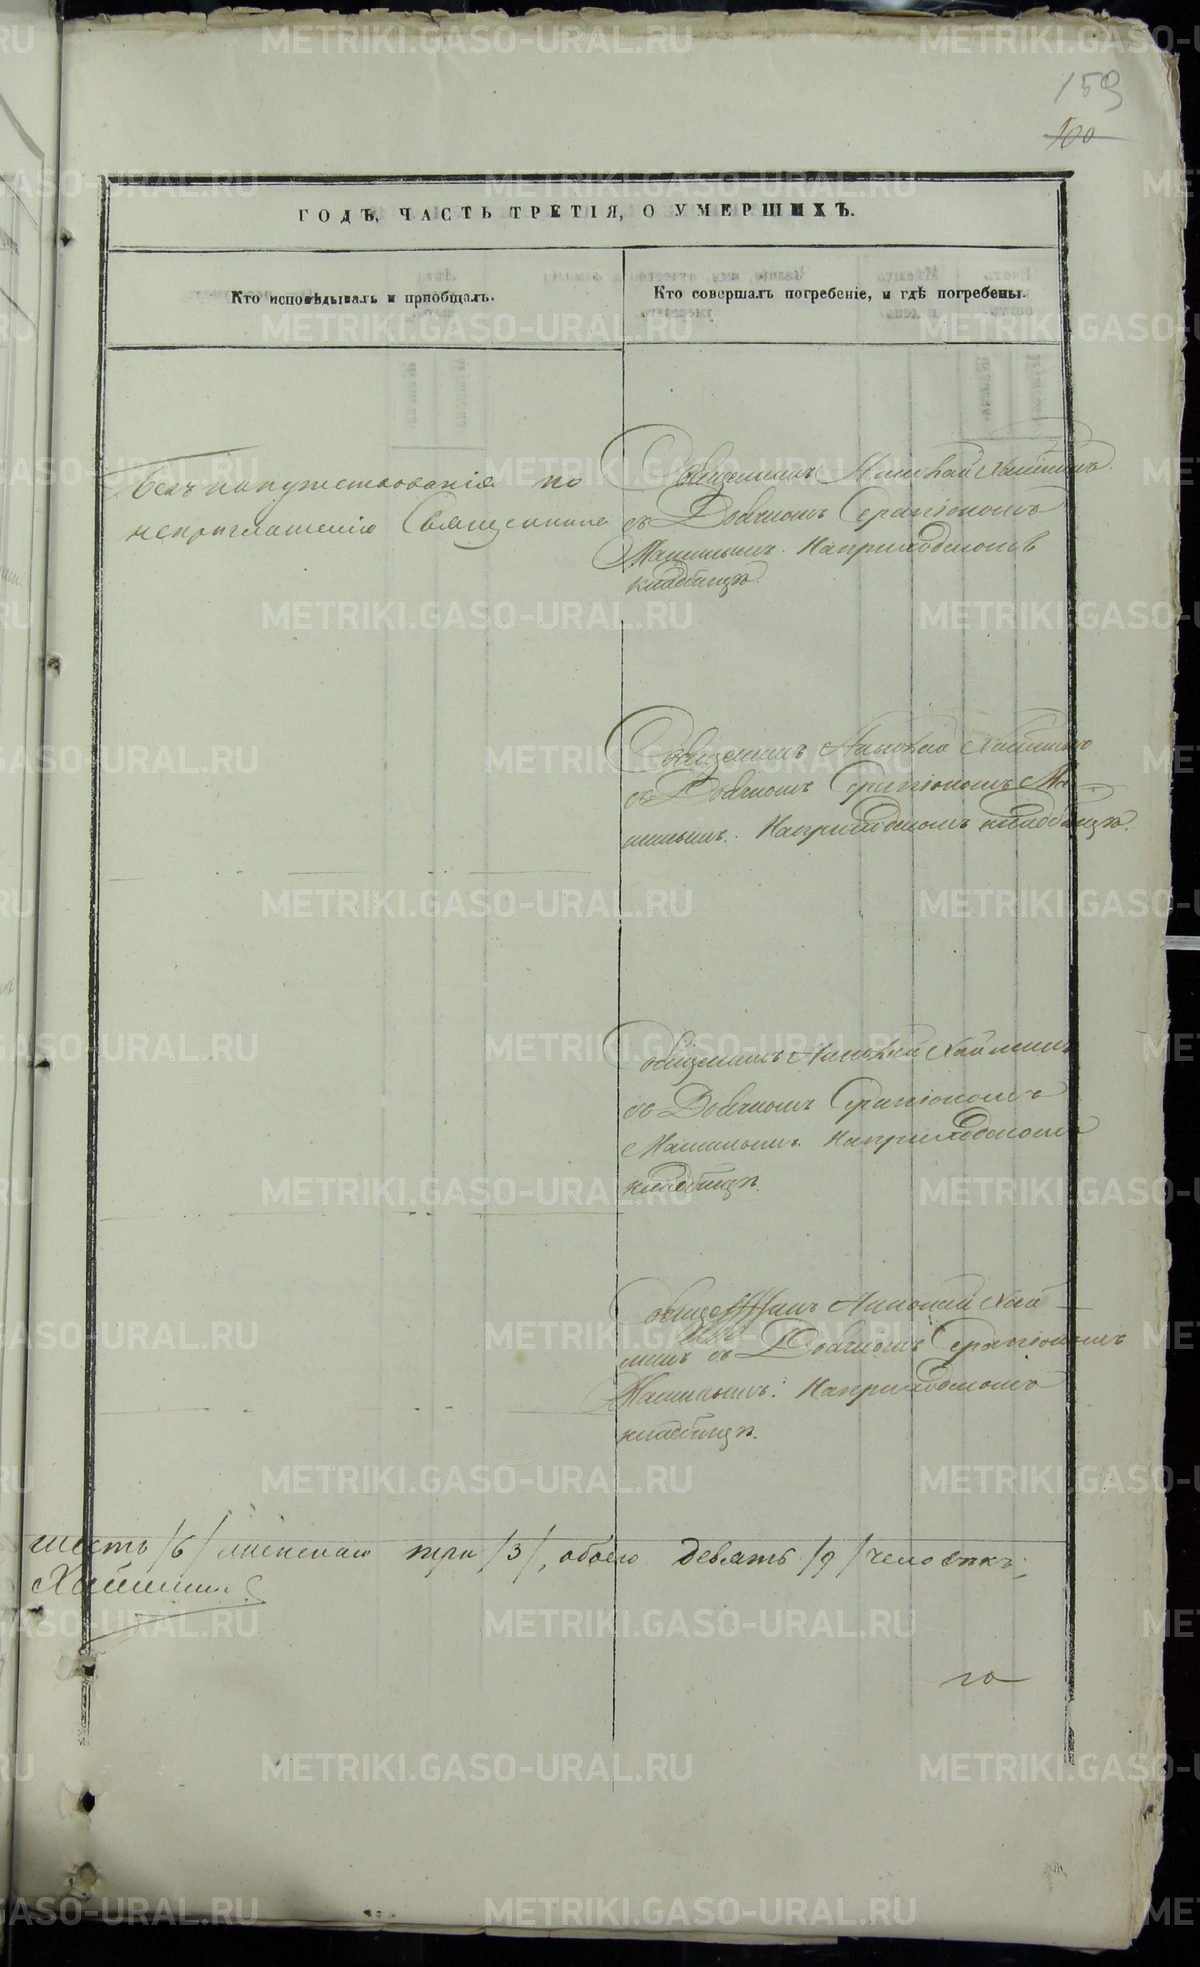 159
100
ГОДЪ, ЧАСТЬ ТРЕТІЯ, О УМЕРШИХЪ.
Кто исповѣдывалъ и пріобщалъ.
Кто совершалъ погребеніе, и гдѣ погребены.
Безъ напутствованія по
неприглашенію Священника
Священникъ Николай
съ Дьячкомъ Серапіономъ
На приходскомъ
кладбищѣ.
Священникъ Николай
съ Дьячкомъ Серапіономъ
На приходскомъ кладбищѣ.
Священникъ Николай
съ Дьячкомъ Серапіономъ
На приходскомъ
кладбищѣ.
Священникъ Николай
съ Дьячкомъ Серапіономъ
На приходскомъ
кладбищѣ.
шесть /6/ женскаго три /3/, обоего девять /9/ человѣкъ;
METRIKI.GASO-URAL.RU